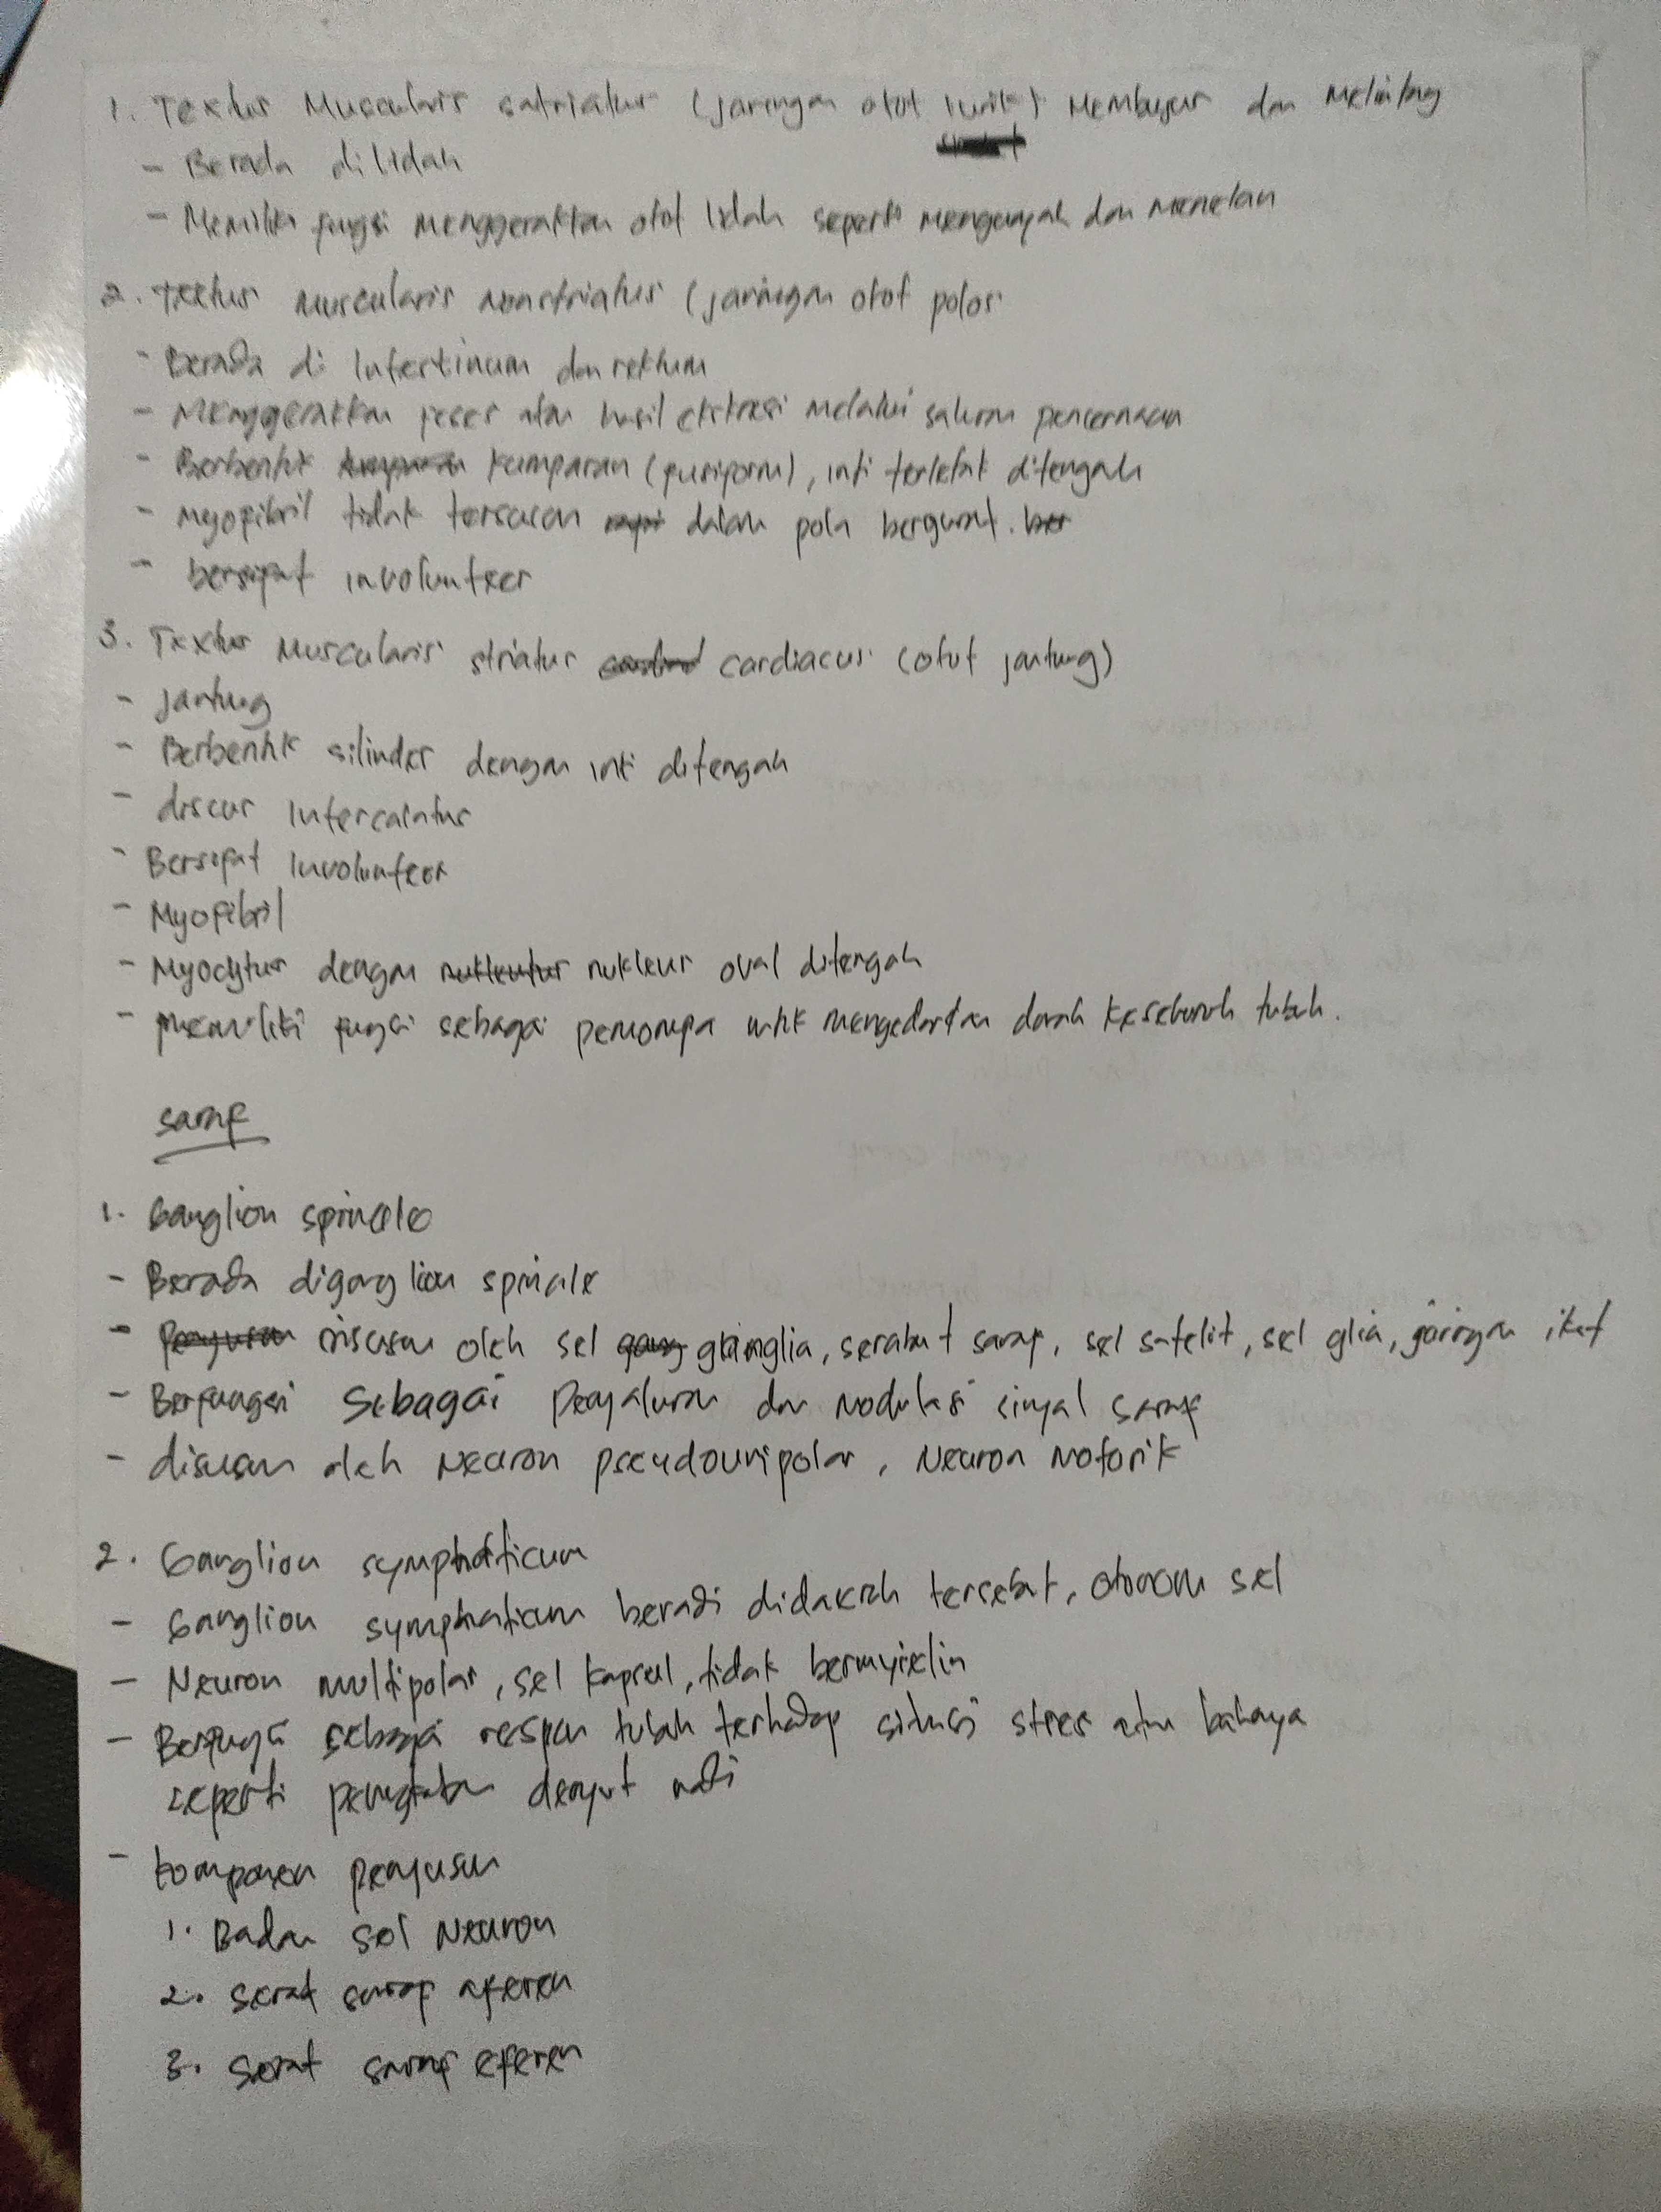 1. Textus Muscularis satriatus (jaringan otot lurik) Membujur dan Melintang
- Berada dilidah
- Memiliki fungsi menggerakkan otot lidah seperti mengunyah dan menelan
2. Textus Muscularis nonstriatus (jaringan otot polos
- Berada di Intestinum dan rektum
- Menggerakkan feses atau hasil ekskresi melalui saluran pencernaan
- Berbentuk kumparan (fusiform), inti terletak ditengah
- Myofibril tidak tersusun dalam pola bergurat.
- bersifat involunteer
3. Textus Muscularis striatus cardiacus (otot jantung)
- Jantung
- Berbentuk silinder dengan inti ditengah
- discus Intercalatus
- Bersifat Involunteer
- Myofibril
- Myocytus dengan nukleus oval ditengah
- Memiliki fungsi sebagai pemompa untk mengedarkan darah keseluruh tubuh.
saraf
1. Ganglion spinale
- Berada diganglion spinale
- disusun oleh sel ganglia, serabut saraf, sel satelit, sel glia, jaringan ikat
- Berfungsi sebagai penyaluran dan modulasi sinyal saraf
- disusun oleh Neuron pseudounipolar, Neuron Motorik
2. Ganglion symphaticum
- Ganglion symphaticum berada didaerah tersebut, otonom sel
- Neuron multipolar, sel kapsul, tidak bermyielin
- Berfungsi sebagai respon tubuh terhadap situasi stres atau bahaya
seperti peningkatan denyut nadi
- komponen penyusun
1. Badan sel Neuron
2. Serat saraf aferen
3. Serat saraf eferen